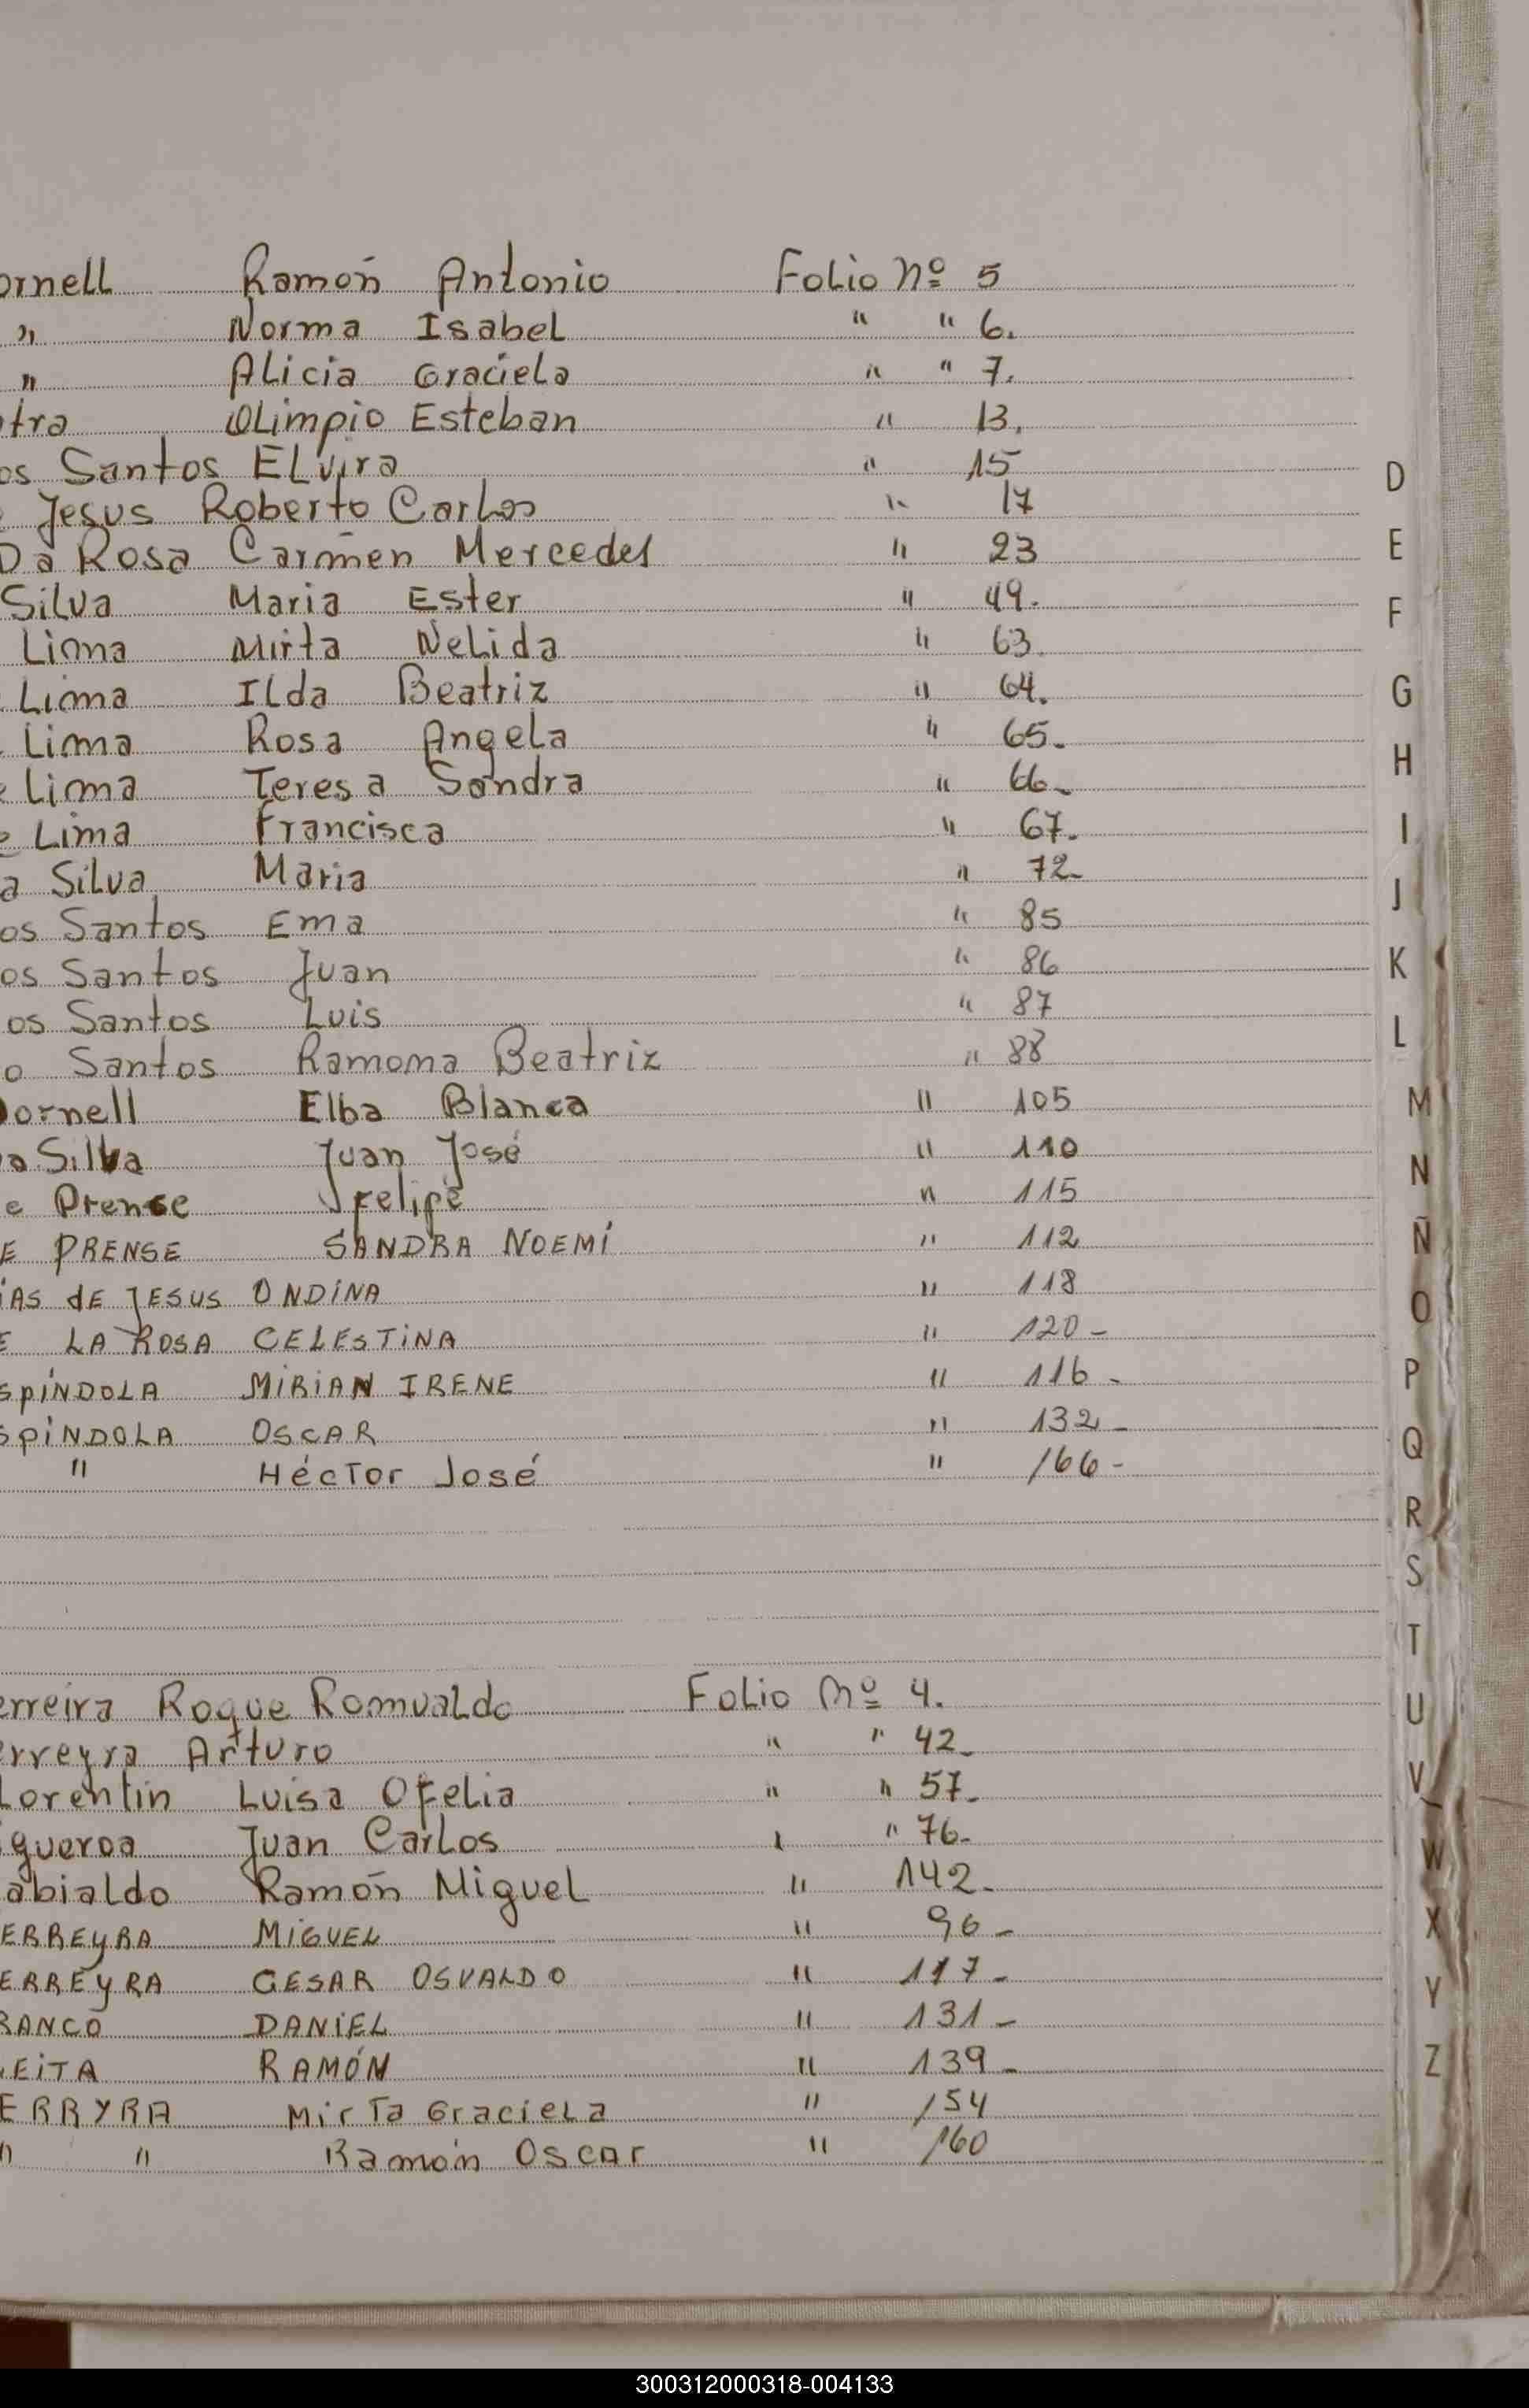 ornell Ramón Antonio Folio Nº 5
" Norma Isabel " " 6.
" Alicia Graciela " " 7.
tra Olimpio Esteban " 13.
os Santos Elvira " 15
Jesus Roberto Carlos " 17
Da Rosa Carmen Mercedes " 23
Silva Maria Ester " 49.
Lima Mirta Nelida " 63.
Lima Ilda Beatriz " 64.
Lima Rosa Angela " 65.
e Lima Teresa Sandra " 66.
e Lima Francisca " 67.
a Silva Maria " 72.
os Santos Ema " 85
os Santos Juan " 86
os Santos Luis " 87
o Santos Ramona Beatriz " 88
Dornell Elba Blanca " 105
a Silva Juan José " 110
e Prense Felipe " 115
E PRENSE SANDRA NOEMÍ " 112
ÍAS dE JESUS ONDINA " 118
E LA ROSA CELESTINA " 120-
SPÍNDOLA MIRIAN IRENE " 116-
SPÍNDOLA OSCAR " 132-
" Héctor José " 166-
erreira Roque Romualdo Folio Nº 4.
erreyra Arturo " " 42.
lorentin Luisa Ofelia " " 57.
igueroa Juan Carlos " " 76.
abialdo Ramón Miguel " 142.
ERREYRA MIGUEL " 96-
ERREYRA CESAR OSVALDO " 117-
RANCO DANIEL " 131-
LEITA RAMÓN " 139-
ERRYRA Mirta Graciela " 154
" " Ramón Oscar " 160
D
E
F
G
H
I
J
K
L
M
N
Ñ
O
P
Q
R
S
T
U
V
W
X
Y
Z
300312000318-004133